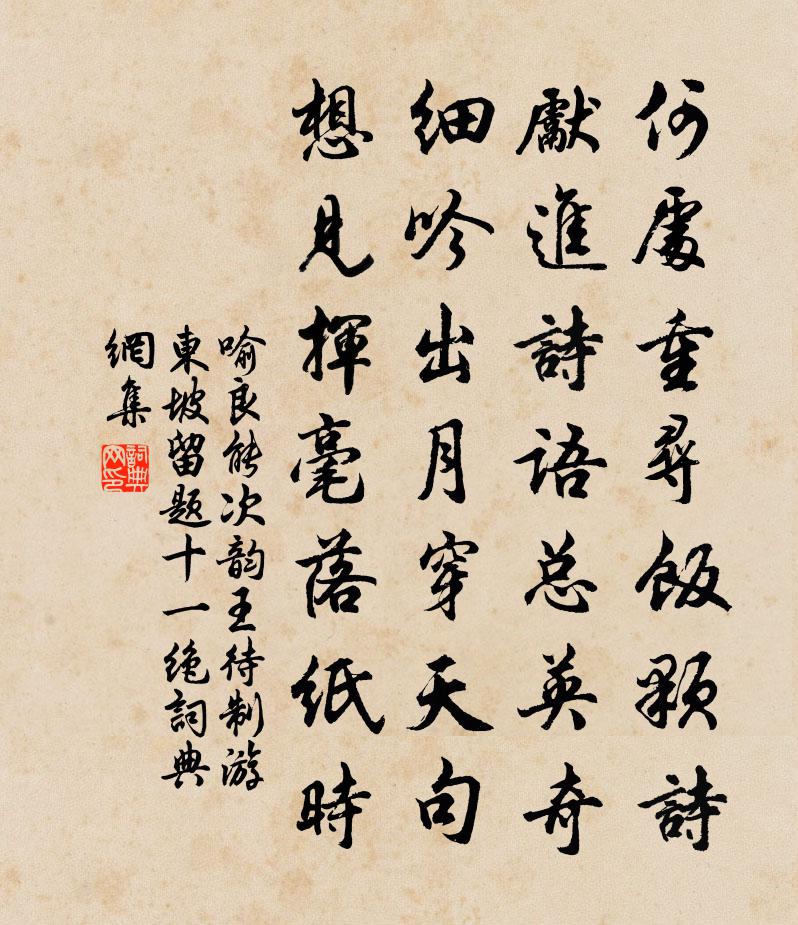 何處重尋飯顆詩
獻進詩語总英奇
細吟出月穿天句
想見揮毫落紙時
喻良能次韵王待制游
東坡留題十一绝詞典
網集
詞典
网印